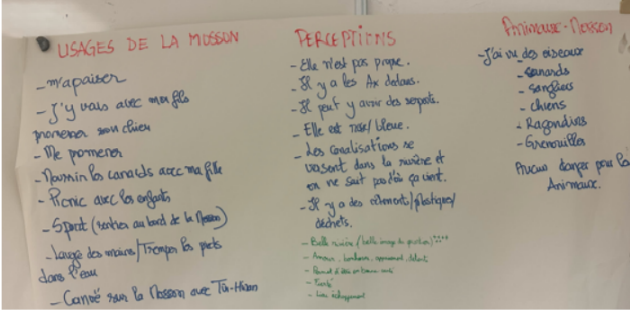 USAGES DE LA MOSSON
- m'apaiser
- J'y vais avec mon fils
promener son chien
- Me promener
- Nourrir les canards avec ma fille
- Picnic avec les enfants
- Sport (sentier au bord de la Mosson)
- Lavage des mains / Tremper les pieds
dans l'eau
- Canoë sur la Mosson avec
PERCEPTIONS
- Elle n'est pas propre.
- Il y a les dedans.
- Il peut y avoir des serpents.
- Elle est / bleue.
- Les canalisations se
versent dans la rivière et
on ne sait pas d'où ça vient.
- Il y a des vêtements / plastiques /
déchets.
- Belle rivière (belle image de
- Amour, bonheur,
-
- Pureté
- Lieu échappement
Animaux - Mosson
- J'ai vu des oiseaux
- canards
- sangliers
- chiens
- Ragondins
- Grenouilles
Aucun danger pour les
Animaux.